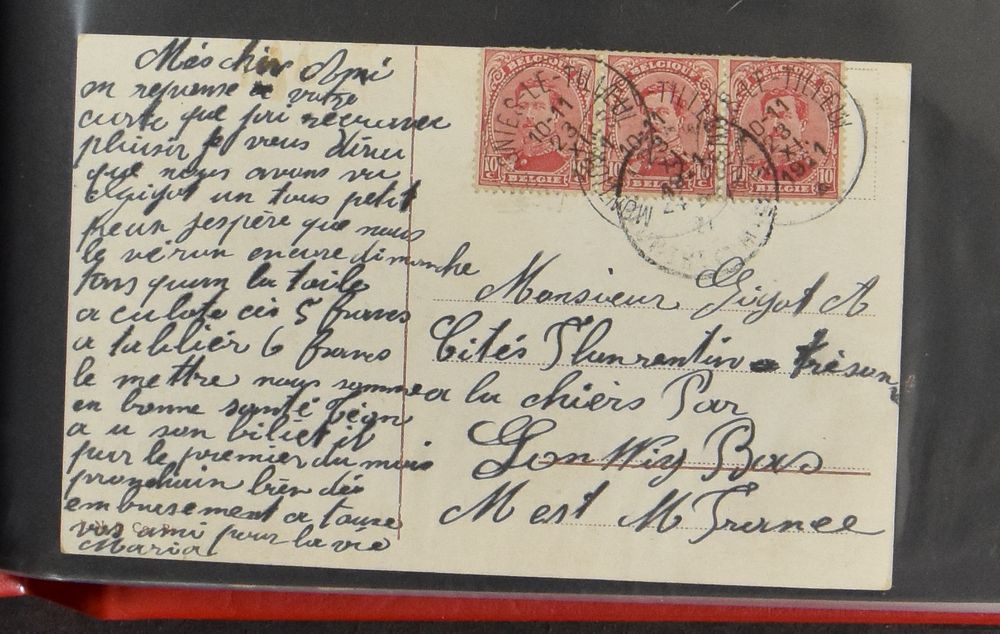 Mes chir Ami
en reponse a votre
carte que jai recu avec
plaisir je vous dirai
que nous avons vu
Gigot un tous petit
peux jespère que nous
le vèron encore dimanche
tans quan la taile
a culote ces 5 francs
a tablier 6 francs
le mettre nous somme
en bonne santé Léon
a u son biliet il
par le premier du mois
prochain bien dès
embrasement a touse
vos ami pour la vie
Maria
BELGIQUE
BELGIQUE
BELGIQUE
10 BELGIE 10
BELGIE
BELGIE 10
10-11
23
XI
10-11
23
TILLEUL
10-11
23
XI
LE-TILLEUL
24
Monsieur Gigot A
Cités Flurentin a trèson
a la chiers Par
Lon Wiy Bas
M est M France